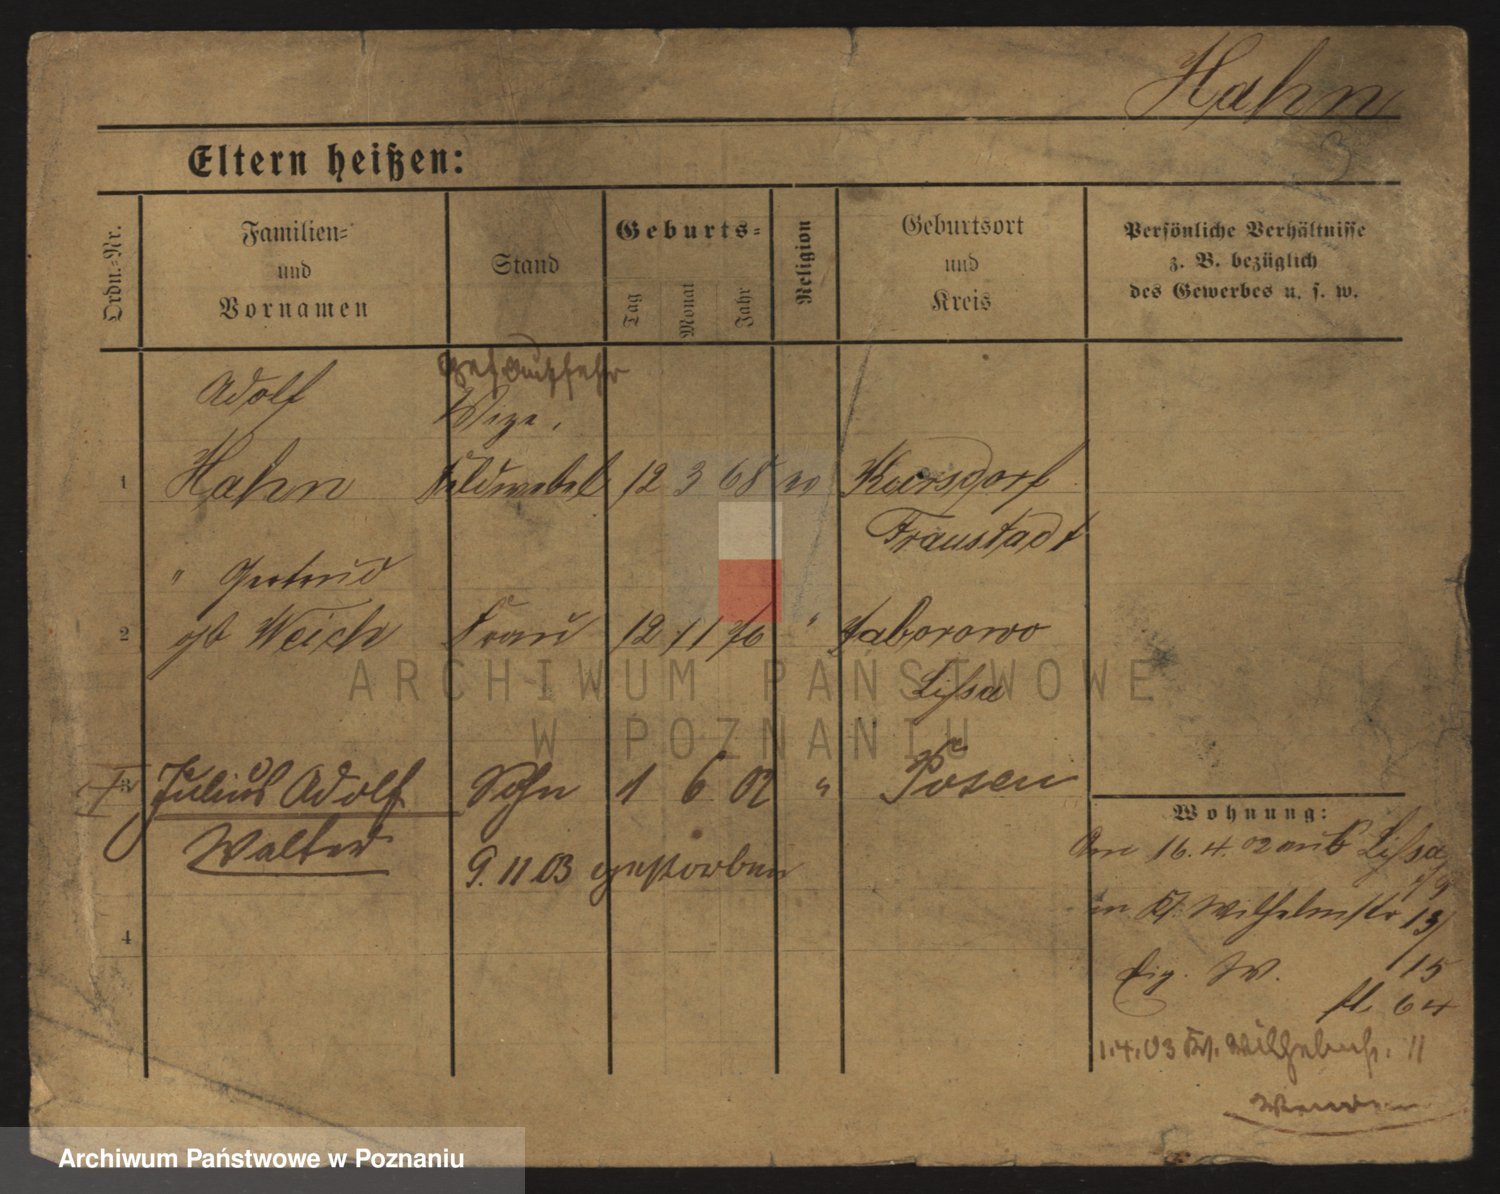 Hahn
Eltern heißen:
Ordn.-Nr.
Familien-
und
Vornamen
Stand
Geburts-
Tag
Monat
Jahr
Religion
Geburtsort
und
Kreis
Persönliche Verhältnisse
z. B. bezüglich
des Gewerbes u. s. w.
Adolf
Vize.
1 Hahn Feldwebel 12 3 68 Kursdorf
Fraustadt
" Gertrud
2 gb Weich Frau 12 11 76 " Jaborowo
Lissa
3 Julius Adolf Sohn 1 6 02 " Posen
Walter
9.11.03 gestorben
4
Wohnung:
Am 16.4.02 aus Lissa
in Wilhelmstr 13/
15
Eig. W.
fl. 64
1.4.03 Wilhelmstr. 11
Wenden
ARCHIWUM PAŃSTWOWE
W POZNANIU
Archiwum Państwowe w Poznaniu